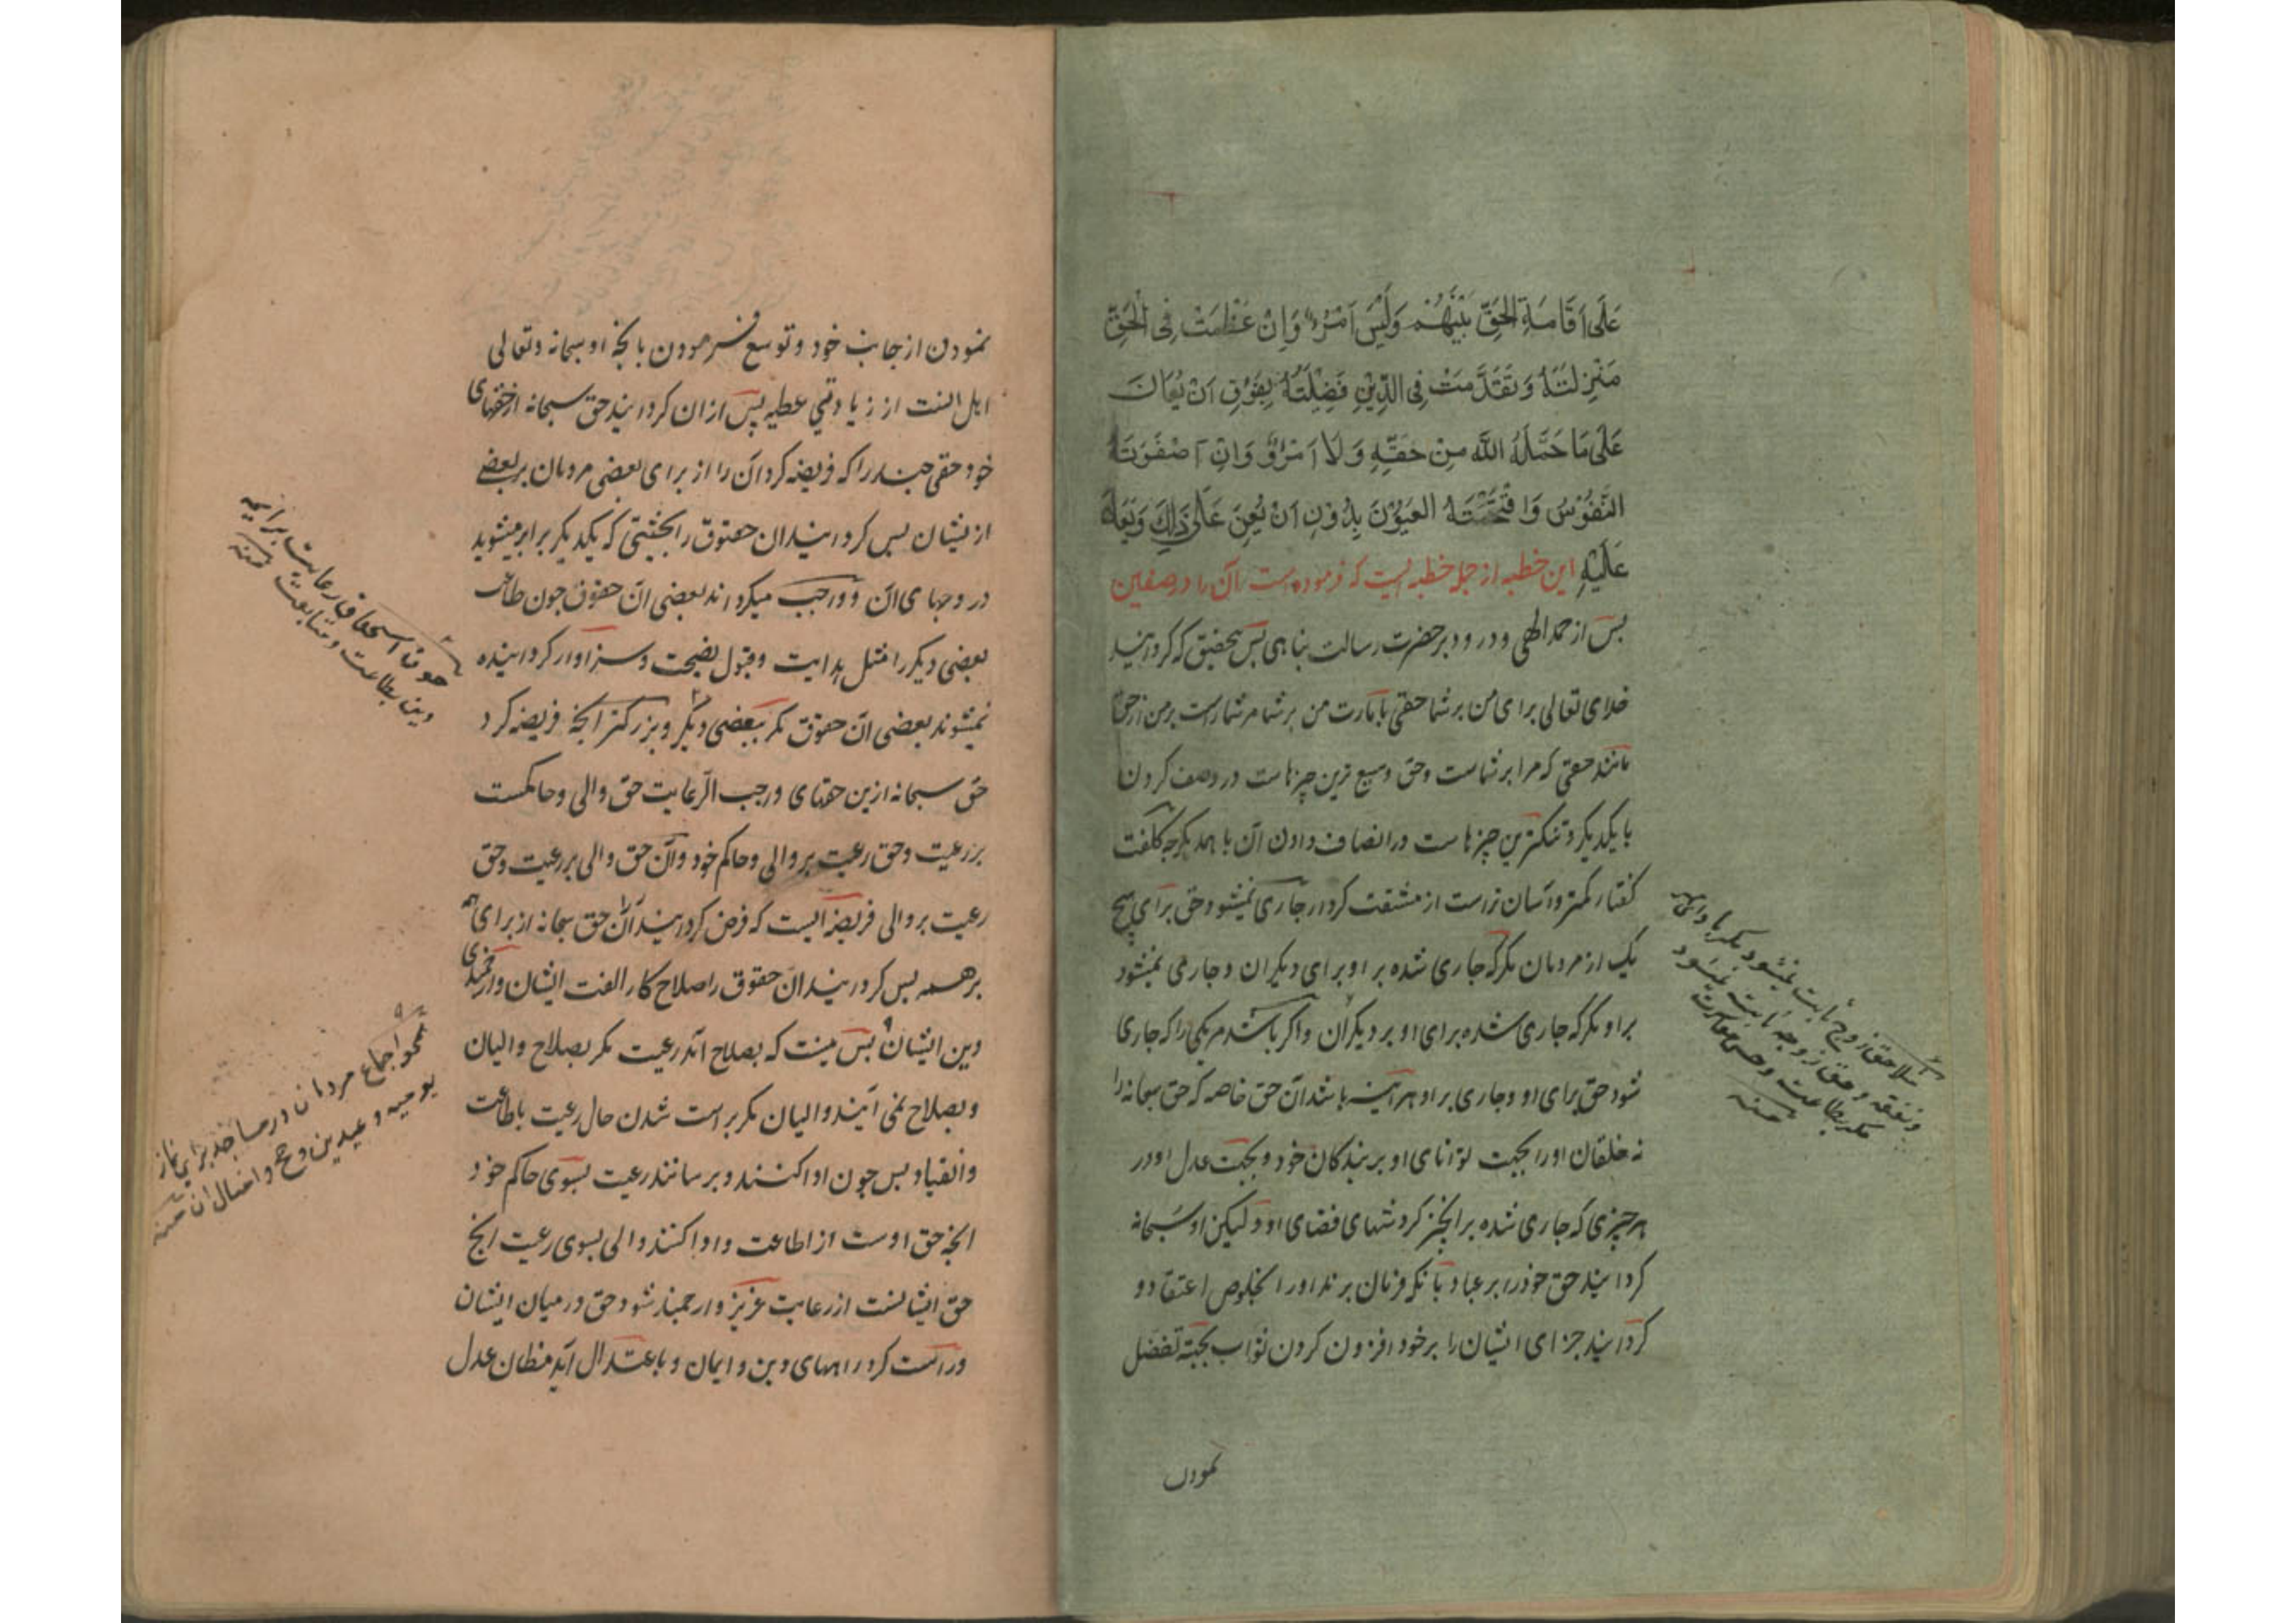 عَلَی اَقَامَةِ الحَقِّ بَیْنَهُمْ وَلَیْسَ اَمْرُءٌ وَاِنْ عَظُمَتْ فِی الْحَقِّ
مَنْزِلَتُهُ وَتَقَدَّمَتْ فِی الدِّیْنِ فَضِیْلَتُهُ بِفَوْقِ اَنْ یُعَانَ
عَلَی مَا حَمَّلَهُ اللّٰهُ مِنْ حَقِّهِ وَلَا اَمْرُؤٌ وَاِنْ اَصْغَرَتْهُ
النُّفُوْسُ وَاقْتَحَمَتْهُ العُیُوْنَ بِدُوْنِ اَنْ یُعِیْنَ عَلَی ذَلِكَ وَیُعَانَ
عَلَیْهِ این خطبه از جمله خطبه ایست که فرموده است آن را در صفین
پس از حمد الهی و درود بر حضرت رسالت پناهی پس بتحقیق که کردانید
خدای تعالی برای من بر شما حقی بامارت من بر شما و مر شماراست بر من از حق
مانند حقی که مرا بر شماست و حق وسیع ترین چیزهاست در وصف کردن
با یکدیکر و تنکترین چیزهاست در انصاف دادن آن با همدیکر چه کلفت
کفتار کمتر و آسان تر است از مشقت کردار جاری نمیشود حق برای هیچ
یک از مردمان مکر که جاری شده بر او برای دیکران و جاری نمیشود
بر او مکر که جاری شده برای او بر دیکران و اکر باشد مر یکی را که جاری
شود حق برای او و جاری بر او هر آینه باشد آن حق خاصه که حق سبحانه را
نه خلقان او را بجهت توانای او بر بندکان خود و بجهت عدل او در
هر چیزی که جاری شده بر انچیز کردشهای قضای او و لیکن او سبحانه
کردانید حق خود را بر عباد بآنکه فرمان برند او را بخلوص اعتقاد و
کردانید جزای ایشان را بر خود افزون کردن ثواب بجهته تفضل
نمودن
مثلا حق زوج ثابت نمیشود مکر با دای مهر
و نفقه و حق زوجه ثابت نمیشود
مکر بطاعت و حسن معاشرت
منه
نمودن از جانب خود و توسع فرمودن بانچه او سبحانه و تعالی
اهل انست از زیادتی عطیه پس ازان کردانید حق سبحانه از حقهای
خود حقی چند را که فریضه کرد آن را از برای بعضی مردمان بر بعضی
از یشان پس کردانید ان حقوق را بحیثیتی که یکدیکر برابر میشوید
در وجهای آن و واجب میکرداند بعضی آن حقوق چون طاعت
بعضی دیکر را مثل هدایت و قبول نصیحت و سزاوار کردانیده
نمیشوند بعضی آن حقوق مکر ببعضی دیکر و بزرکتر انچه فریضه کرد
حق سبحانه ازین حقهای واجب الرّعایت حق والی و حاکمست
بر رعیت و حق رعیت بر والی و حاکم خود و آن حق والی بر رعیت و حق
رعیت بر والی فریضه ایست که فرض کردانید آن را حق سبحانه از برای همه
بر همه پس کردانید ان حقوق را صلاح کار الفت ایشان و ارجمندی
دین ایشان پس نیست که بصلاح آید رعیت مکر بصلاح والیان
و بصلاح نمی آیند والیان مکر براست شدن حال رعیت باطاعت
و انقیاد پس چون ادا کنند و برسانند رعیت بسوی حاکم خود
انچه حق اوست از اطاعت و ادا کند والی بسوی رعیت انچه
حق ایشانست از رعایت عزیز و ارجمند شود حق در میان ایشان
و راست کردد راههای دین و ایمان و باعتدال آید مظان عدل
چون استحقاق رعایت برایمه
دین بطاعت و متابعت منه
نحو اجماع مردمان در مساجد برای نماز
یومیه و عیدین و حج و امثال ان منه